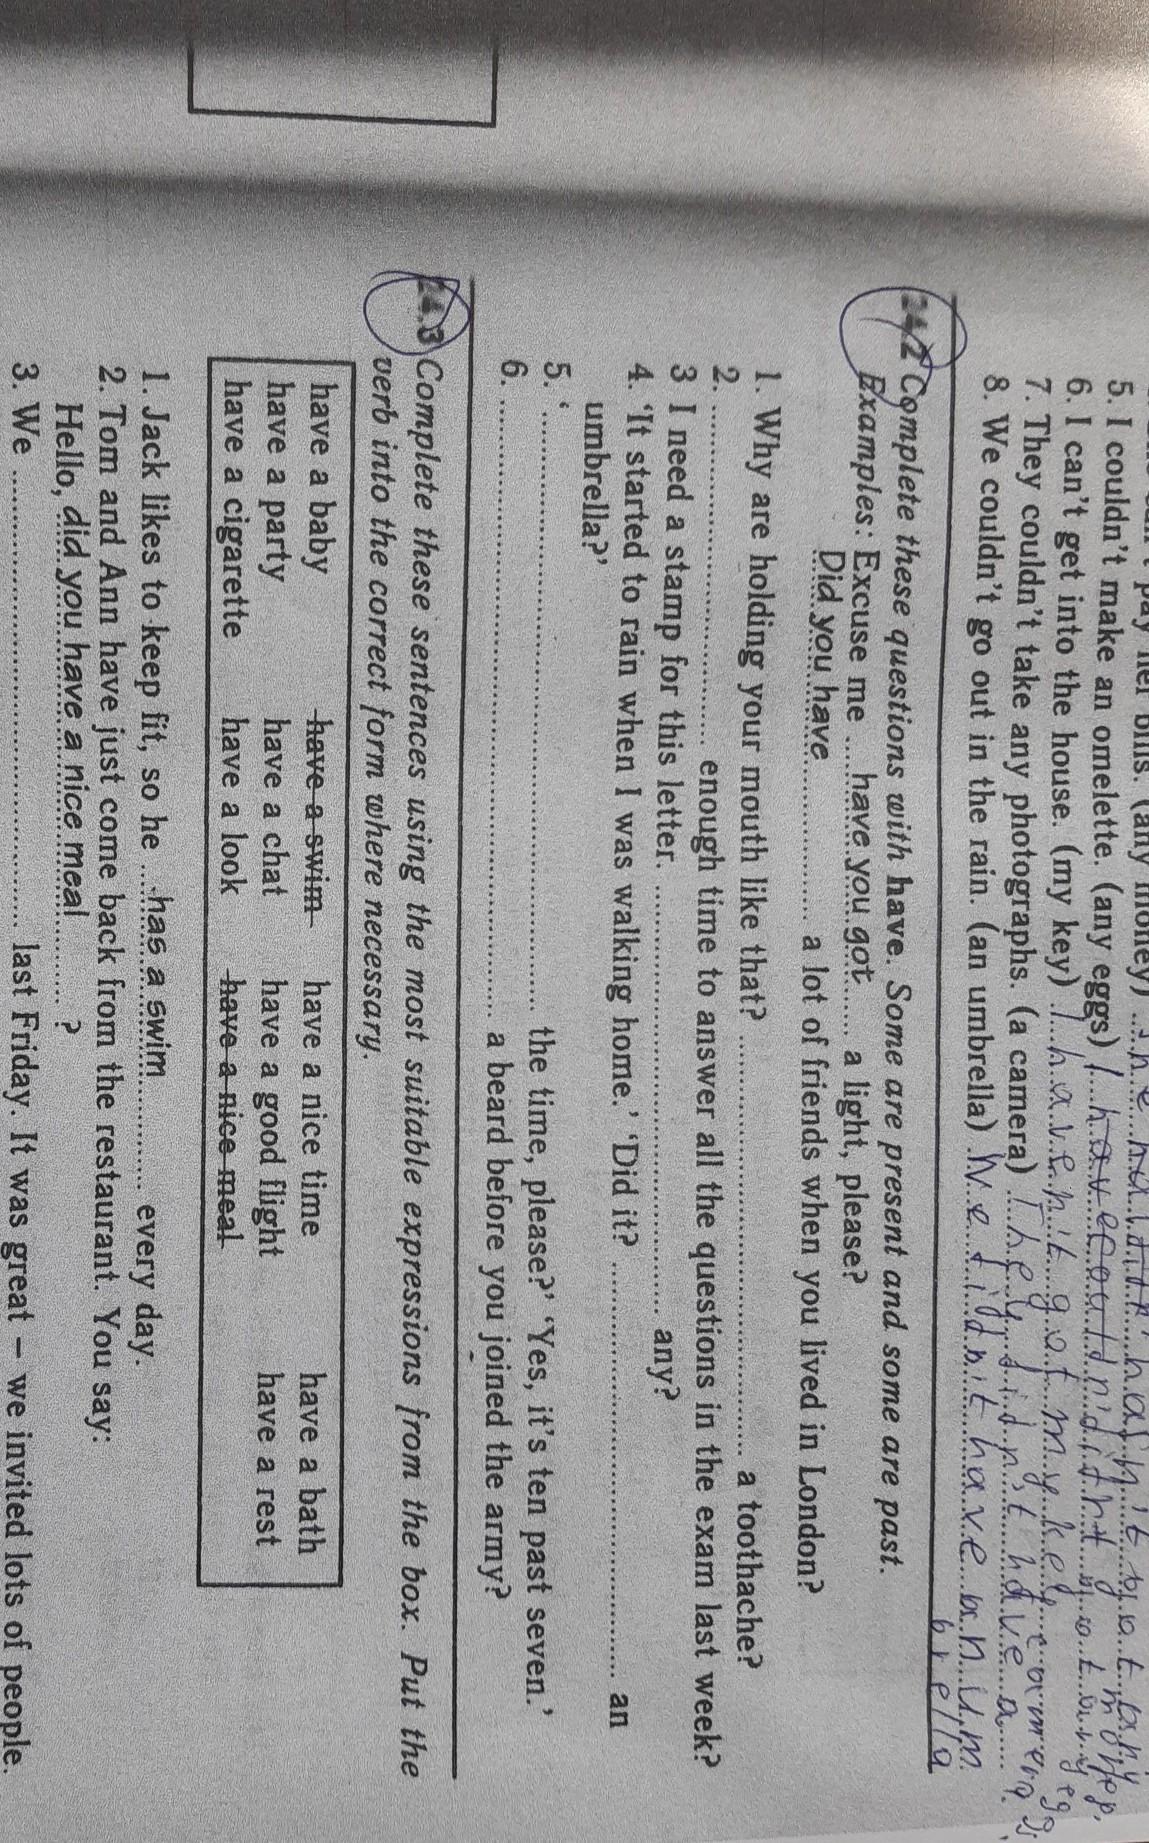 pay her bills. (any money)
5. I couldn't make an omelette. (any eggs) I
6. I can't get into the house. (my key) I haven't got my key
7. They couldn't take any photographs. (a camera) They didn't have a camera.
8. We couldn't go out in the rain. (an umbrella) We didn't have an um
brella
24.2 Complete these questions with have. Some are present and some are past.
Examples: Excuse me ... have you got ..... a light, please?
Did you have .................... a lot of friends when you lived in London?
1. Why are holding your mouth like that? .................................................. a toothache?
2. ........................................ enough time to answer all the questions in the exam last week?
3 I need a stamp for this letter. .................................................. any?
4. 'It started to rain when I was walking home.' 'Did it? .................................................. an
umbrella?'
5. ' ...................................................................... the time, please?' 'Yes, it's ten past seven.'
6. ...................................................................... a beard before you joined the army?
24.3 Complete these sentences using the most suitable expressions from the box. Put the
verb into the correct form where necessary.
have a baby have a swim have a nice time have a bath
have a party have a chat have a good flight have a rest
have a cigarette have a look have a nice meal
1. Jack likes to keep fit, so he ....has a swim............... every day.
2. Tom and Ann have just come back from the restaurant. You say:
Hello, did you have a nice meal ..........?
3. We .................................................. last Friday. It was great – we invited lots of people.